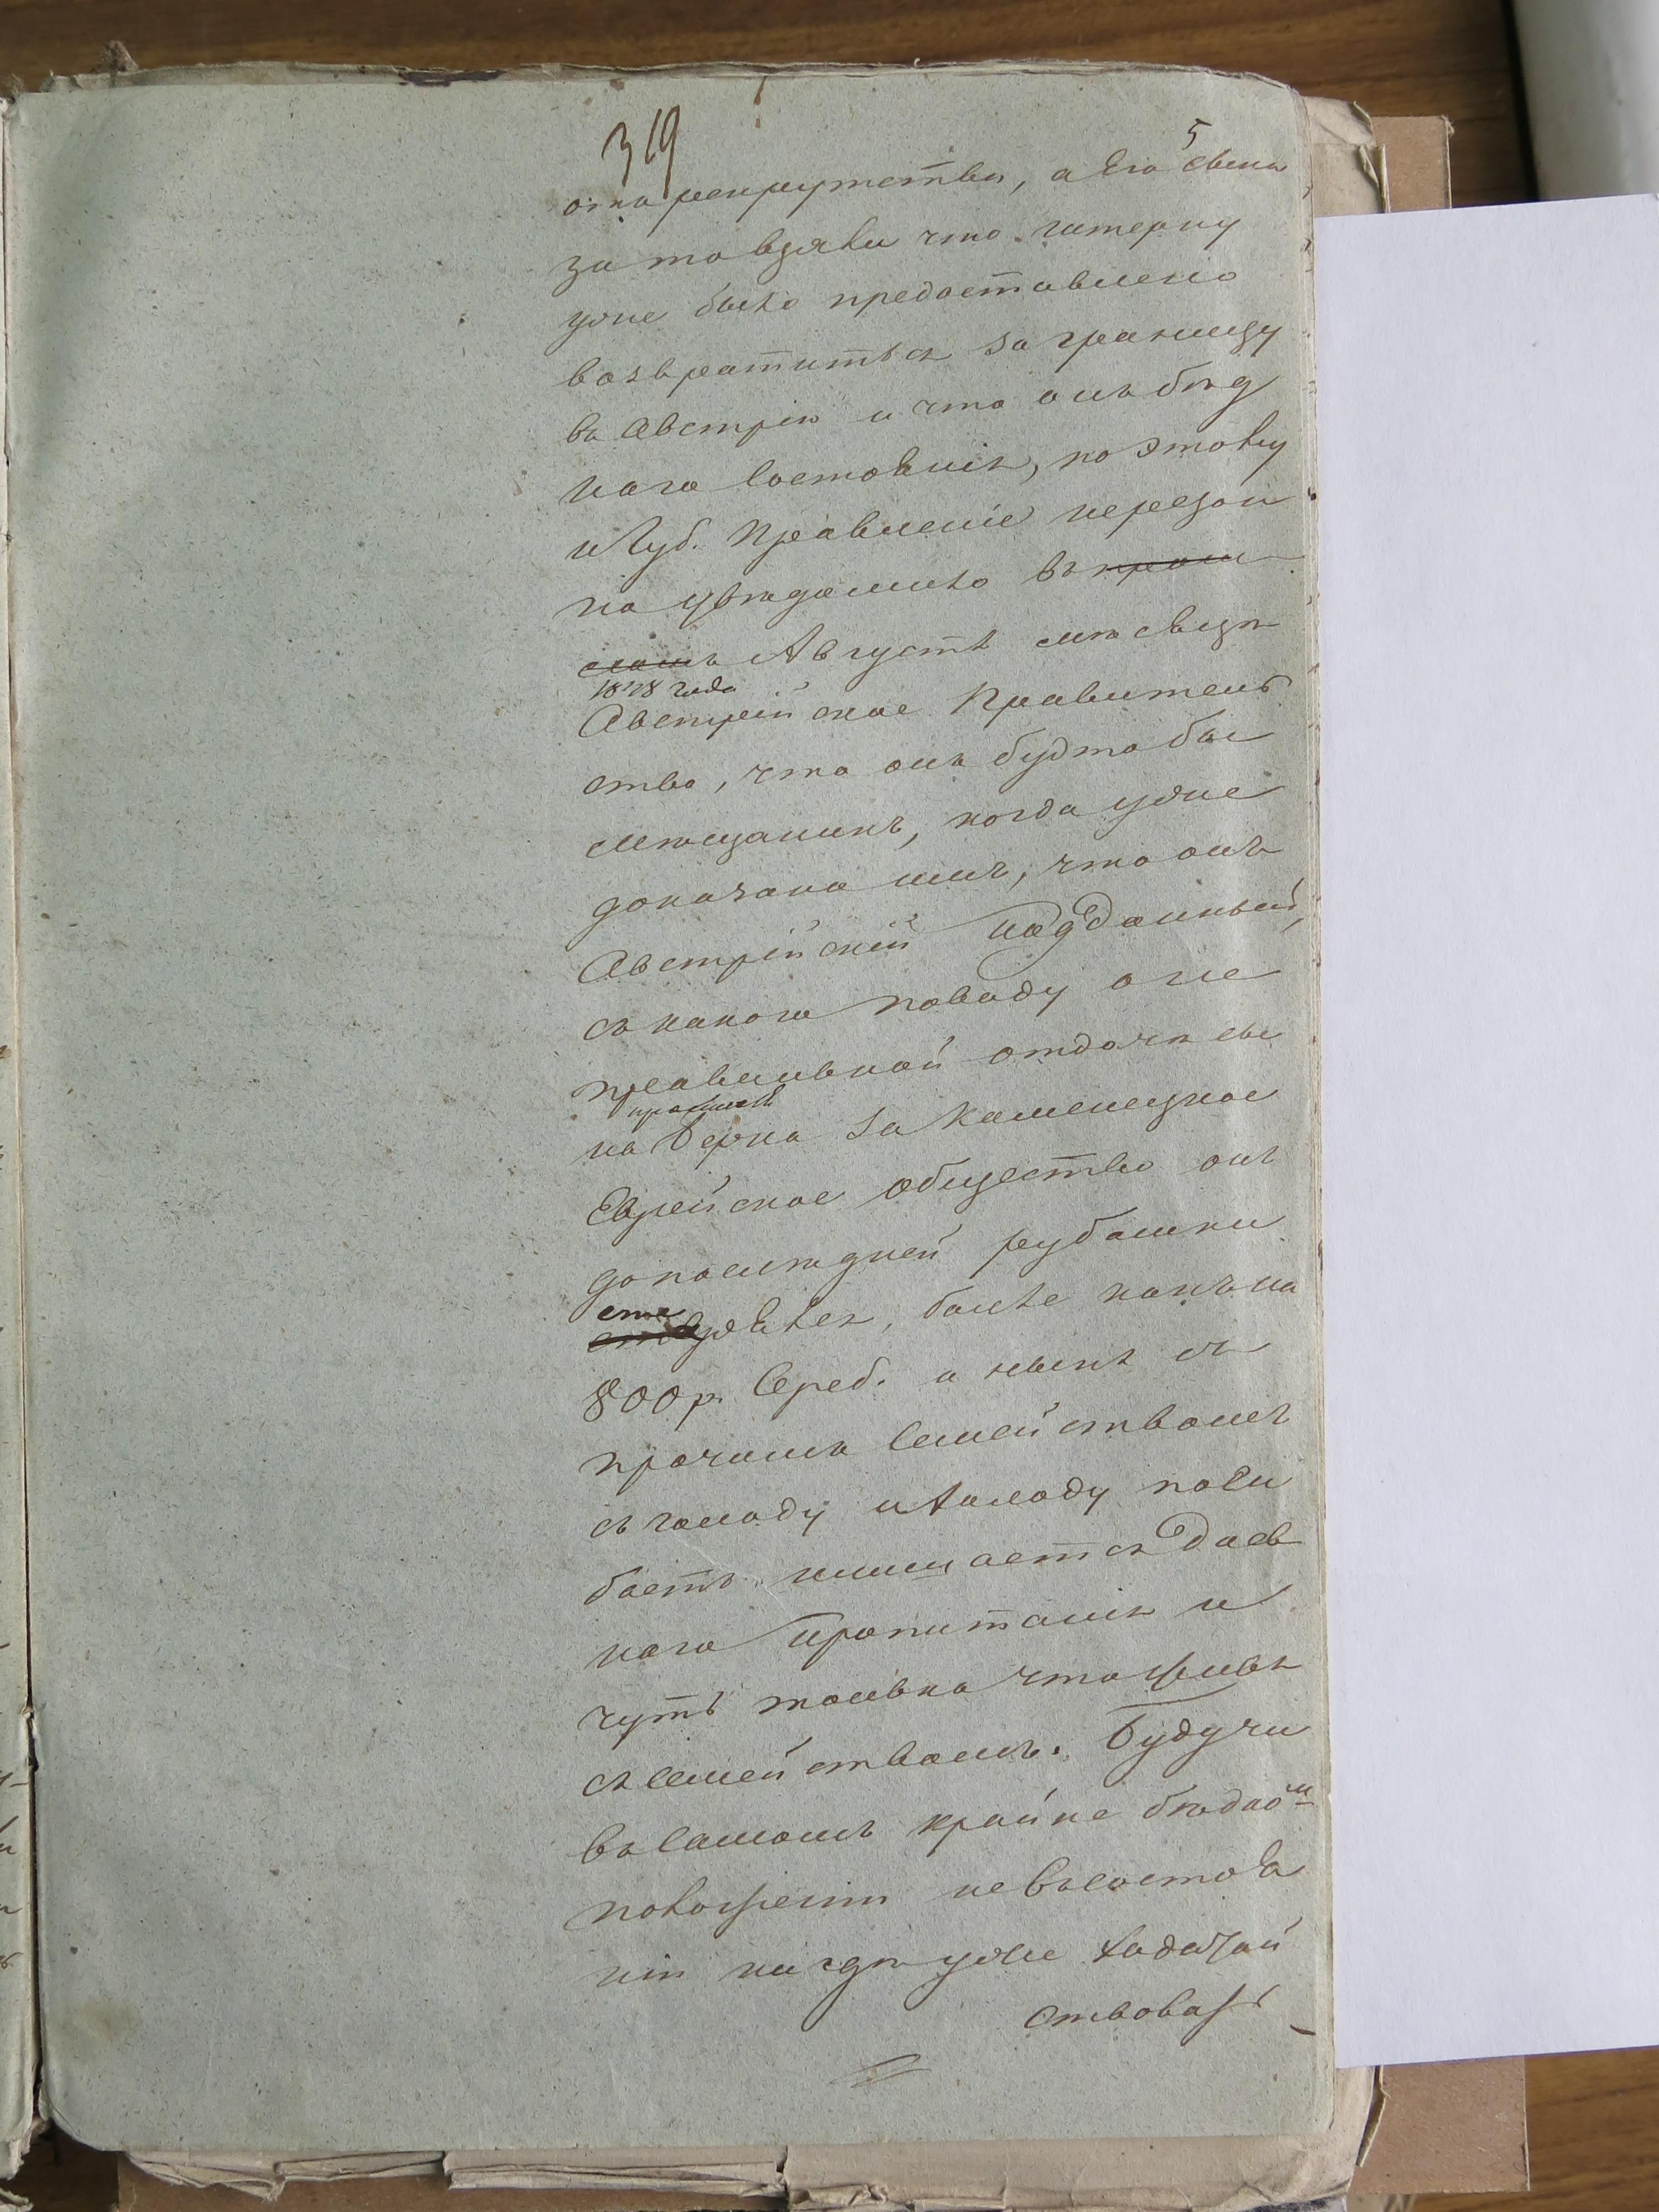 319
5
отъ рекрутства, а Его сына
за то взяли что Штерну
уже было предоставлено
возвратиться за границу
въ Австрію и что онъ бѣд
наго состоянія, по этому
и Губ. Правленіе
на увѣдомило въ прош
ломъ Августѣ мѣсяцѣ
1848 года
Австрійское Правитель
ство, что онъ будто бы
мѣщанинъ, когда уже
доказано имъ, что онъ
Австрійскій подданный,
съ какого поводу о не
правильной отдачѣ сы
на Берка за Каменецкое
Еврейское общество онъ
до послѣдней рубашки
болѣе какъ на
800 р. Сереб. и нынѣ съ
прочимъ Семействомъ
съ голоду и холоду поги
баетъ лишается днев
наго пропитанія и
чуть только что живъ
съ Семействомъ. Будучи
въ самомъ крайне бѣдном
положеніи не въ состоя
ніи нигдѣ уже ходатай
ствовать